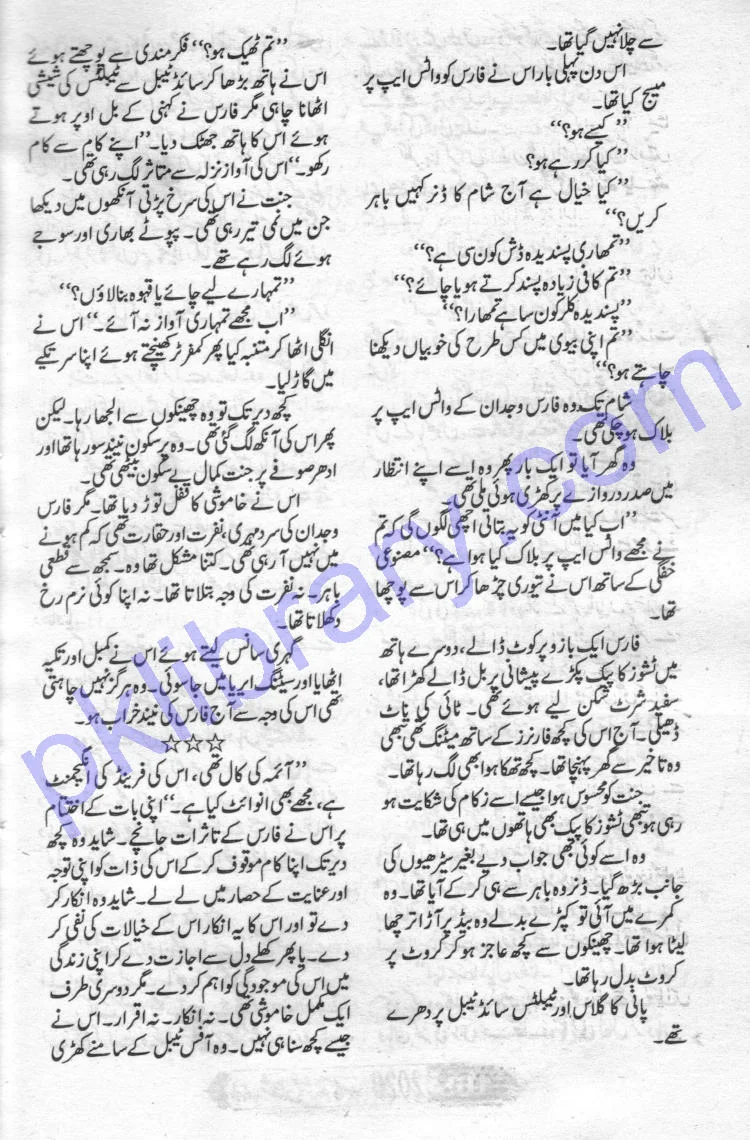 سے چلا نہیں گیا تھا۔
اس دن پہلی بار اس نے فارس کو واٹس ایپ پر
میسج کیا تھا۔
’’کیسے ہو؟‘‘
’’کیا کر رہے ہو؟
’’کیا خیال ہے آج شام کا ڈنر کہیں باہر
کریں؟‘‘
’’تمھاری پسندیدہ ڈش کون سی ہے؟‘‘
’’تم کافی زیادہ پسند کرتے ہو یا چائے؟‘‘
’’پسندیدہ کلر کون سا ہے تمھارا؟‘‘
’’تم اپنی بیوی میں کس طرح کی خوبیاں دیکھنا
چاہتے ہو؟‘‘
شام تک وہ فارس وجدان کے واٹس ایپ پر
بلاک ہو چکی تھی۔
وہ گھر آیا تو ایک بار پھر وہ اسے اپنے انتظار
میں صدر دروازے پر کھڑی ہوئی ملی تھی۔
’’اب کیا میں آنٹی کو یہ بتاتی اچھی لگوں گی کہ تم
نے مجھے واٹس ایپ پر بلاک کیا ہوا ہے؟‘‘ مصنوعی
خفگی کے ساتھ اس نے تیوری چڑھا کر اس سے پوچھا
تھا۔
فارس ایک بازو پر کوٹ ڈالے، دوسرے ہاتھ
میں ٹشوز کا پیک پکڑے پیشانی پر بل ڈالے کھڑا تھا،
سفید شرٹ شکن لیے ہوئے تھی۔ ٹائی کی ناٹ
ڈھیلی۔ آج اس کی کچھ فارنرز کے ساتھ میٹنگ تھی تبھی
وہ تاخیر سے گھر پہنچا تھا۔ کچھ تھکا ہوا بھی لگ رہا تھا۔
جنت کو محسوس ہوا جیسے اسے زکام کی شکایت ہو
رہی ہو تبھی ٹشوز کا پیک بھی ہاتھوں میں ہی تھا۔
وہ اسے کوئی بھی جواب دیے بغیر سیڑھیوں کی
جانب بڑھ گیا۔ ڈنر وہ باہر سے ہی کر کے آیا تھا۔ وہ
کمرے میں آئی تو کپڑے بدلے وہ بیڈ پر آڑا ترچھا
لیٹا ہوا تھا۔ چھینکوں سے کچھ عاجز ہو کر کروٹ پر
کروٹ بدل رہا تھا۔
پانی کا گلاس اور ٹیبلٹس سائڈ ٹیبل پر دھرے
تھے۔
’’تم ٹھیک ہو؟‘‘ فکر مندی سے پوچھتے ہوئے
اس نے ہاتھ بڑھا کر سائڈ ٹیبل سے ٹیبلٹس کی شیشی
اٹھانا چاہی مگر فارس نے کہنی کے بل اوپر ہوتے
ہوئے اس کا ہاتھ جھٹک دیا۔ ’’اپنے کام سے کام
رکھو۔‘‘ اس کی آواز نزلہ سے متاثر لگ رہی تھی۔
جنت نے اس کی سرخ پڑتی آنکھوں میں دیکھا
جن میں نمی تیر رہی تھی۔ پپوٹے بھاری اور سوجے
ہوئے لگ رہے تھے۔
’’تمہارے لیے چائے یا قہوہ بنا لاؤں؟‘‘
’’اب مجھے تمہاری آواز نہ آئے۔‘‘ اس نے
انگلی اٹھا کر متنبہ کیا پھر کمفرٹر کھینچتے ہوئے اپنا سر تکیے
میں گاڑ لیا۔
کچھ دیر تک تو وہ چھینکوں سے الجھا رہا۔ لیکن
پھر اس کی آنکھ لگ گئی تھی۔ وہ پرسکون نیند سو رہا تھا اور
ادھر صوفے پر جنت کمال بے سکون بیٹھی تھی۔
اس نے خاموشی کا قفل توڑ دیا تھا۔ مگر فارس
وجدان کی سرد مہری، نفرت اور حقارت تھی کہ کم ہونے
میں نہیں آ رہی تھی۔ کتنا مشکل تھا وہ۔ سمجھ سے قطعی
باہر۔ نہ نفرت کی وجہ بتلاتا تھا۔ نہ اپنا کوئی نرم رخ
دکھلاتا تھا۔
گہری سانس لیتے ہوئے اس نے کمبل اور تکیہ
اٹھایا اور سیٹنگ ایریا میں جا سوئی۔ وہ ہرگز نہیں چاہتی
تھی اس کی وجہ سے آج فارس کی نیند خراب ہو۔
☆☆☆
’’آئمہ کی کال تھی، اس کی فرینڈ کی انگیجمنٹ
ہے، مجھے بھی انوائٹ کیا ہے۔‘‘ اپنی بات کے اختتام
پر اس نے فارس کے تاثرات جانچے۔ شاید وہ کچھ
دیر تک اپنا کام موقوف کر کے اس کی ذات کو اپنی توجہ
اور عنایت کے حصار میں لے لے۔ شاید وہ انکار کر
دے تو اور اس کا یہ انکار اس کے خیالات کی نفی کر
دے۔ یا پھر کھلے دل سے اجازت دے کر اپنی زندگی
میں اس کی موجودگی کو اہم کر دے۔ مگر دوسری طرف
ایک مکمل خاموشی تھی۔ نہ انکار۔ نہ اقرار۔ اس نے
جیسے کچھ سنا ہی نہیں۔ وہ آفس ٹیبل کے سامنے کھڑی
pklibrary.com